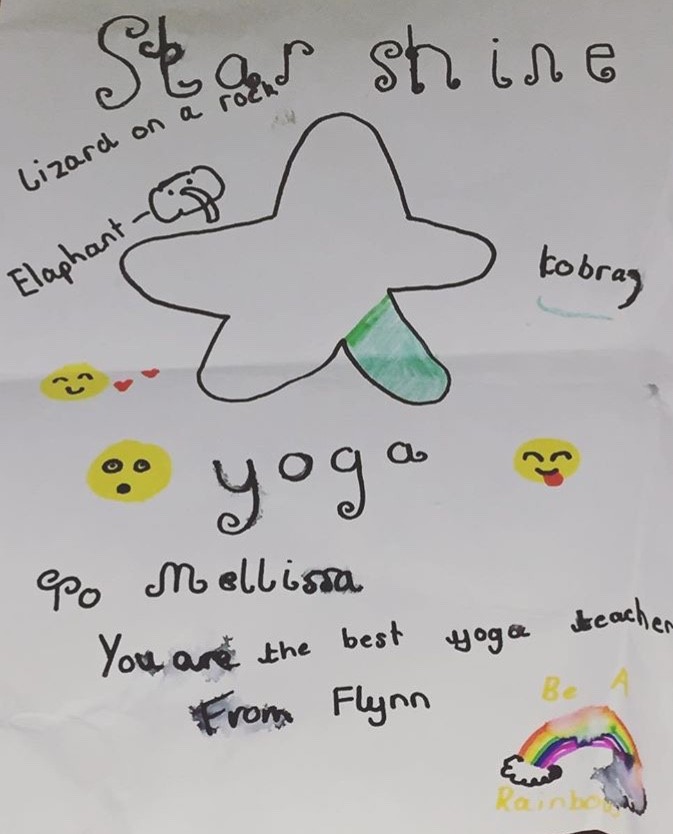 Star shine
Lizard on a rock
Elaphant
kobra
yoga
To Mellissa
You are the best yoga teacher
From Flynn
Be A
Rainbow